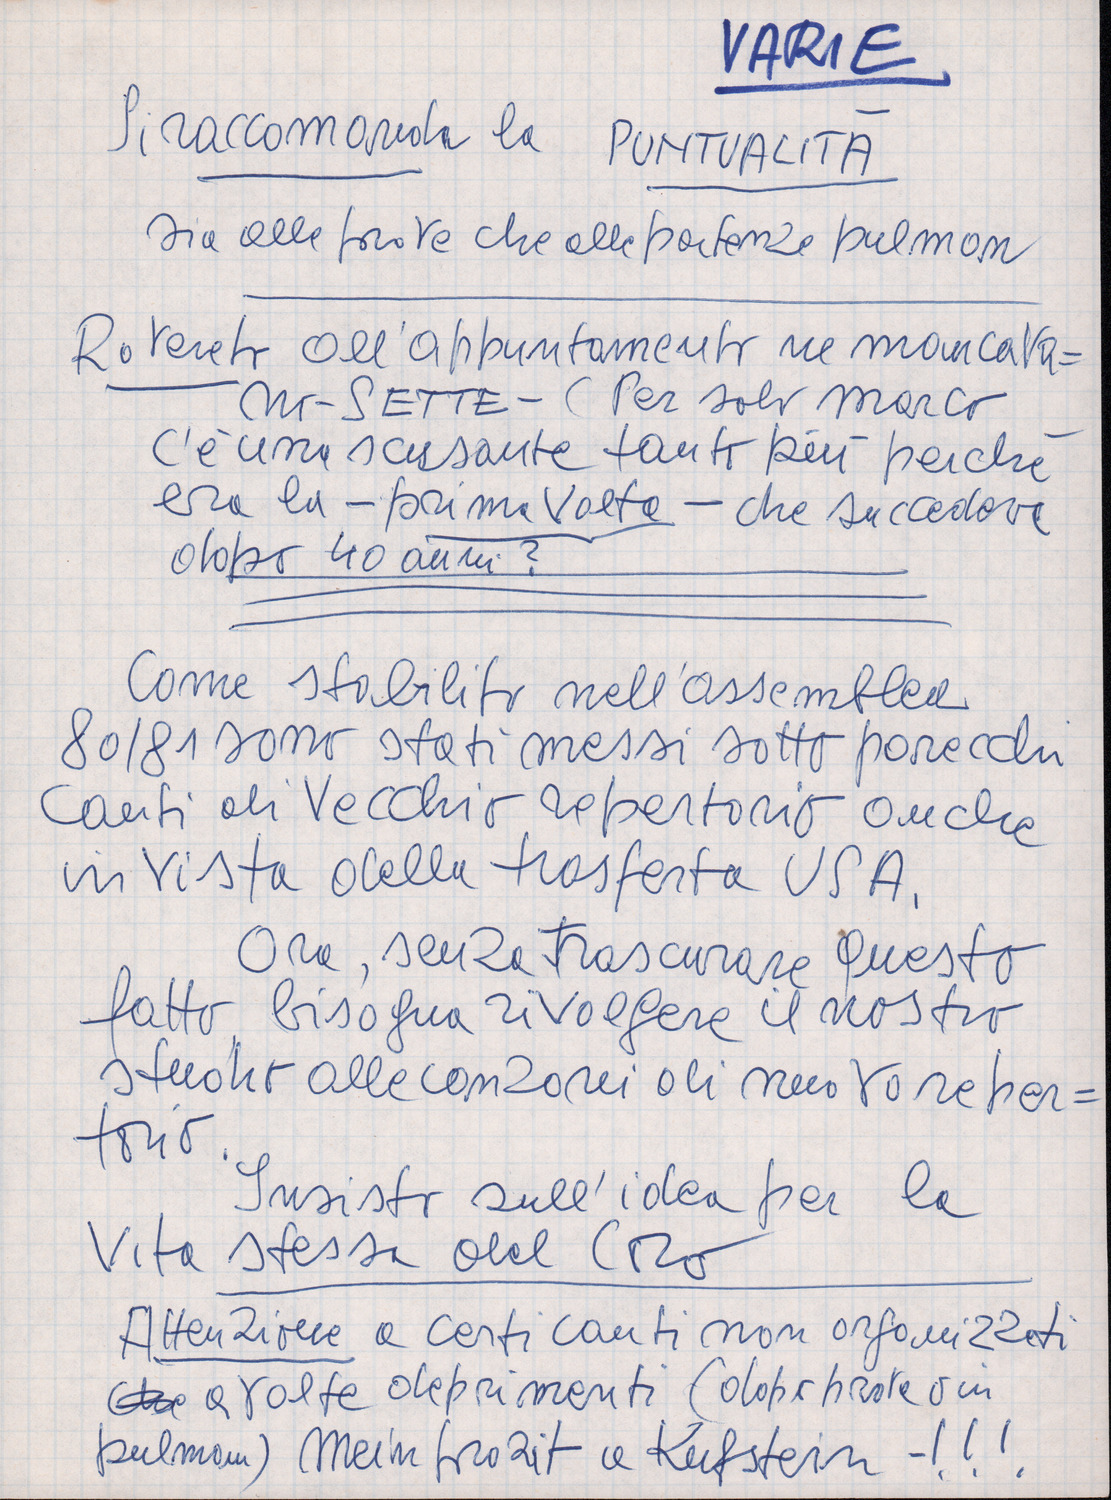 VARIE
Si raccomanda la PUNTUALITÀ
sia alle prove che alle partenze pulman
Rovereto all'appuntamento ne mancava=
no - SETTE - ( Per solo Marco
c'è una scusante tanto più perché
era la - prima volta - che succedeva
dopo 40 anni ?
Come stabilito nell'assemblea
80/81 sono stati messi sotto parecchi
canti di vecchio repertorio anche
in vista della trasferta USA.
Ora, senza trascurare questo
fatto, bisogna rivolgere il nostro
studio alle canzoni di nuovo reper=
torio.
Insisto sull'idea per la
vita stessa del Coro
Attenzione a certi canti non organizzati
a volte deprimenti (dopo prove o in
pulman) Mein prozit a Kufstein - ! ! !